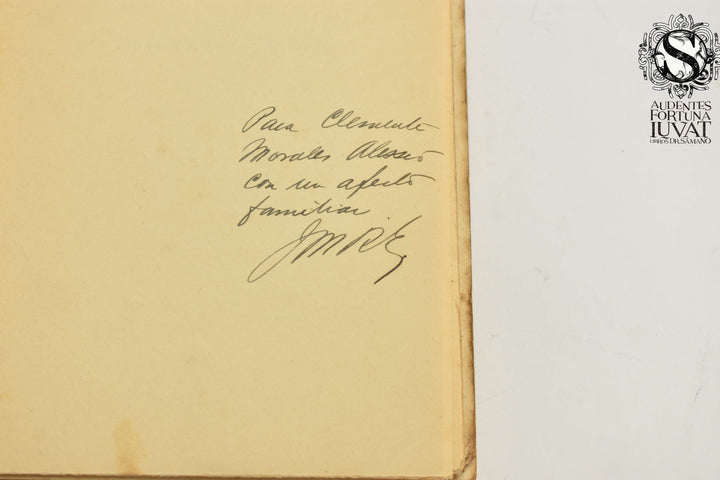 Para Clemente
Morales Alessio
con un afecto
familiar
S
AUDENTES
FORTUNA
IUVAT
LIBROS DR. SÁMANO